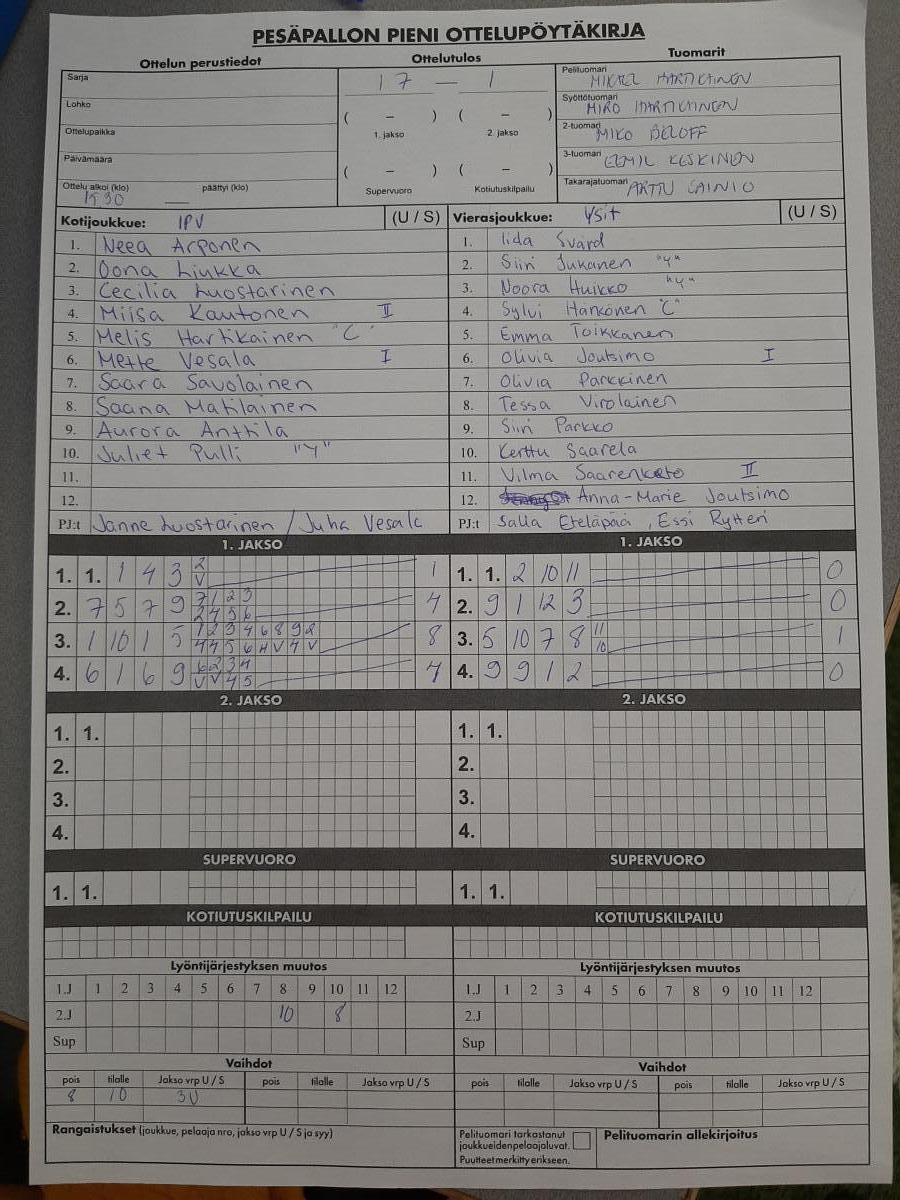 PESÄPALLON PIENI OTTELUPÖYTÄKIRJA
Ottelun perustiedot
Ottelutulos
Tuomarit
Sarja
Lohko
Ottelupaikka
Päivämäärä
Ottelu alkoi (klo) päättyi (klo)
17 — 1
( – ) ( – )
1. jakso 2. jakso
( – ) ( – )
Supervuoro Kotiutuskilpailu
Pelituomari MIKAEL HARTIKAINEN
Syöttötuomari MIRO HARTIKAINEN
2-tuomari MIKO BELOFF
3-tuomari EEMIL KESKINEN
Takarajatuomari ARTTU SAINIO
Kotijoukkue: IPV (U / S)
1. Neea Arponen
2. Oona Liukka
3. Cecilia Luostarinen
4. Miisa Kautonen II
5. Melis Hartikainen "C"
6. Mette Vesala I
7. Saara Savolainen
8. Saana Matilainen
9. Aurora Anttila
10. Juliet Pulli "Y"
11.
12.
PJ:t Janne Luostarinen / Juha Vesala
Vierasjoukkue: Ysit (U / S)
1. Iida Svärd
2. Siiri Jukanen "Y"
3. Noora Huikko "Y"
4. Sylvi Hänkönen "C"
5. Emma Toikkanen
6. Olivia Joutsimo I
7. Olivia Parkkinen
8. Tessa Virolainen
9. Siiri Parkko
10. Kerttu Saarela
11. Vilma Saarenketo II
12. Anna-Marie Joutsimo
PJ:t Salla Eteläpää, Essi Rytteri
1. JAKSO
1. 1. 1 4 3 2 1
V
2. 7 5 7 9 7 1 2 3 4
2 4 5 6
3. 1 10 1 5 1 2 3 4 6 8 9 2 8
4 4 5 6 H V 4 V
4. 6 1 6 9 6 2 3 4 4
V V 4 5
1. JAKSO
1. 1. 2 10 11 0
2. 9 1 12 3 0
3. 5 10 7 8 11 1
10
4. 9 9 1 2 0
2. JAKSO
1. 1.
2.
3.
4.
2. JAKSO
1. 1.
2.
3.
4.
SUPERVUORO
1. 1.
SUPERVUORO
1. 1.
KOTIUTUSKILPAILU
KOTIUTUSKILPAILU
Lyöntijärjestyksen muutos
1.J 1 2 3 4 5 6 7 8 9 10 11 12
2.J 10 8
Sup
Lyöntijärjestyksen muutos
1.J 1 2 3 4 5 6 7 8 9 10 11 12
2.J
Sup
Vaihdot
pois tilalle Jakso vrp U / S pois tilalle Jakso vrp U / S
8 10 3U
Vaihdot
pois tilalle Jakso vrp U / S pois tilalle Jakso vrp U / S
Rangaistukset (joukkue, pelaaja nro, jakso vrp U / S ja syy)
Pelituomari tarkastanut
joukkueiden pelaajaluvat.
Puutteet merkitty erikseen.
Pelituomarin allekirjoitus